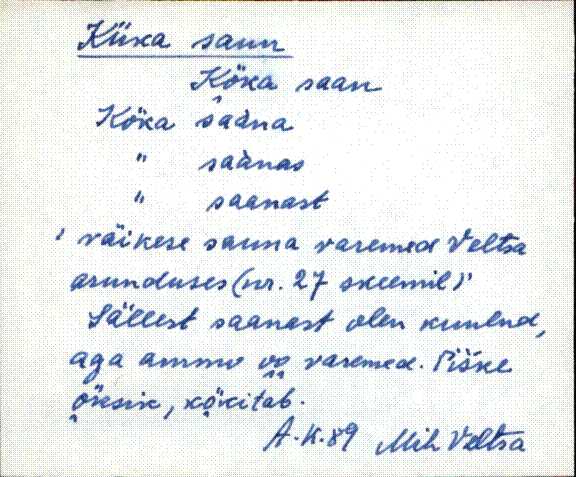 Küka saun
Köka saan
Köka saàna
" saànas
" saanast
' väikese sauna varemed Veltsa
arunduses (nr. 27 skeemil)'
Sällest saanast olen kuulnd,
aga ammu oo varemed. Piške
öksik, kökitab.
A.K.89 Mih Veltsa